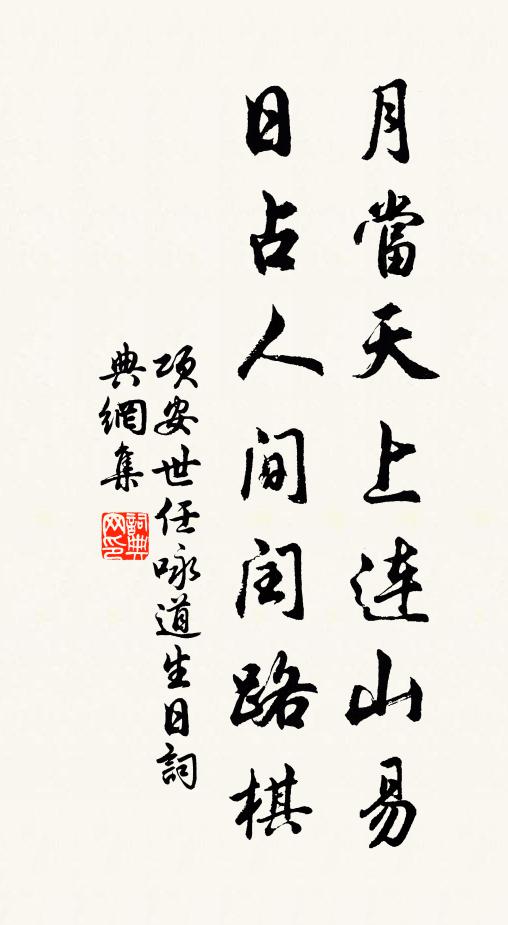 月當天上連山易
日占人间闰路棋
項安世任咏道生日詞
典網集
詞典
网印